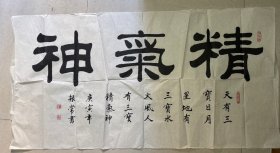 精氣神
天有三
寶日月
星地有
三寶水
火風人
有三寶
精氣神
庚寅年
書